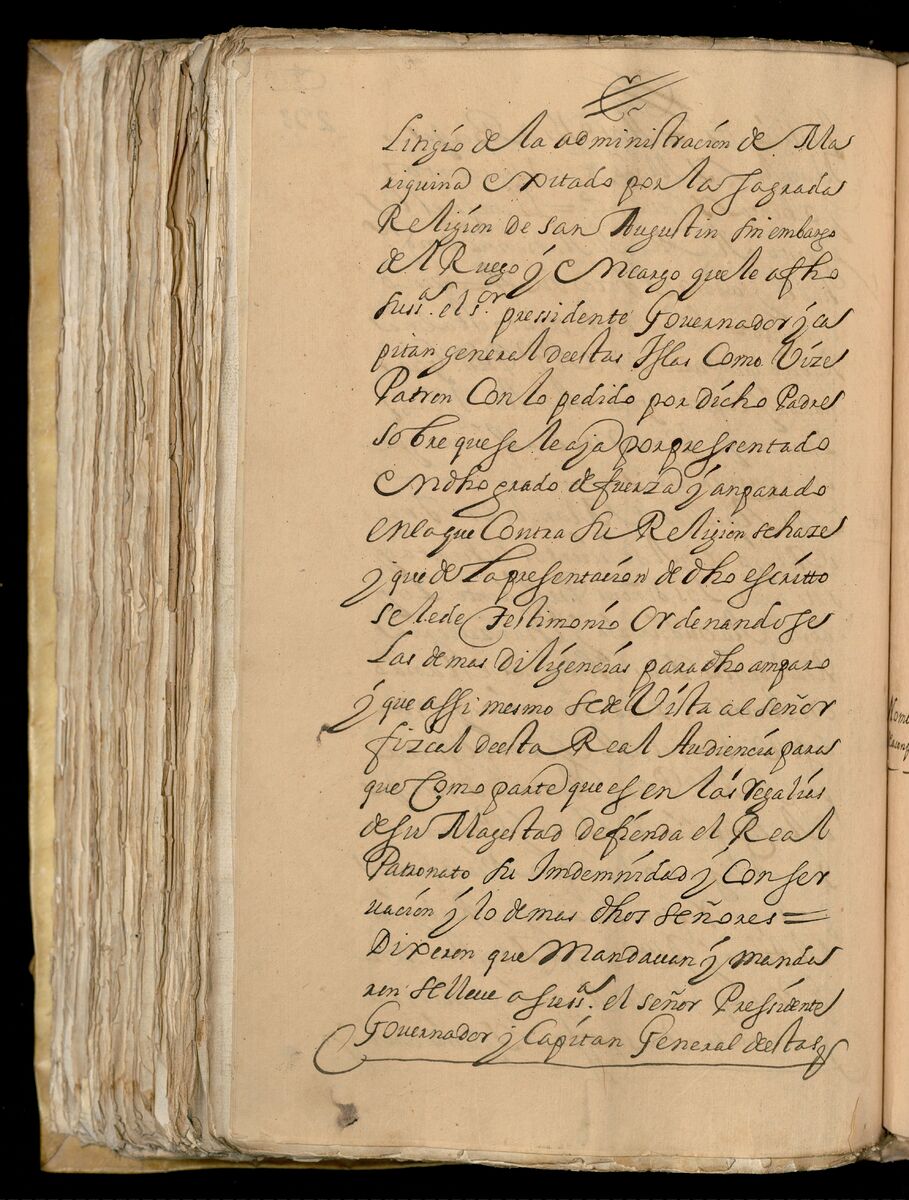 Litigio de la administración de Ma
riquina excitado por la sagrada
Religion de san Augustin sin embargo
del Ruego y encargo que le a fho
suss.ª el s.or pressidente Governador y ca
pitan general deestas Islas Como Vize
Patron Con lo pedido por dicho Padre
sobre que se le aja por pressentado
en dho grado de fuerza y anparado
en la que Contra su Religion se haze
y que de la presentacion de dho escritto
se le de Testimonio Ordenandose
Las demas diligencias para dho amparo
y que assi mesmo se de Vista al señor
fizcal deesta Real Audiencia para
que Como parte que es en las regalias
de su Magestad defienda el Real
Patronato su Indemnidad y Conser
uacion y lo demas dhos señores =
Dixeron que Mandauan y manda
ron se lleue a suss.ª el señor Pressidente
Governador y Capitan General deestas